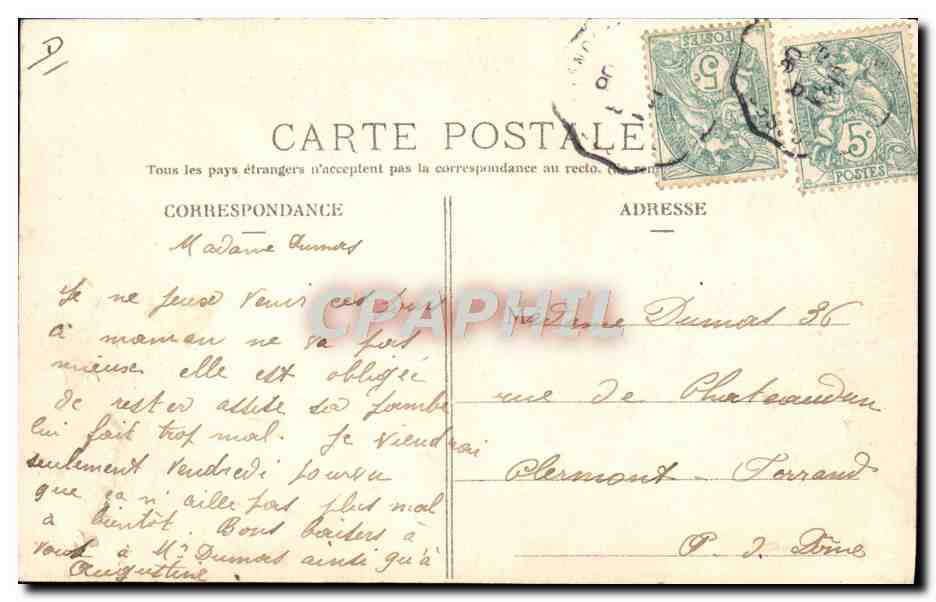 CARTE POSTALE
Tous les pays étrangers n'acceptent pas la correspondance au recto.
CORRESPONDANCE
Madame Dumas
Je ne peux venir ces jours
ci maman ne va pas
mieux elle est obligée
de rester assise sa jambe
lui fait trop mal. Je viendrai
seulement vendredi pourvu
que ça n'aille pas plus mal
à bientôt. Bons baisers à
vous à Mr Dumas ainsi qu'à
Augustine
ADRESSE
Madame Dumas 36
rue de Chateaudun
Clermont-Ferrand
P. d. Dôme
POSTES
5
5c
POSTES
CPAPHIL